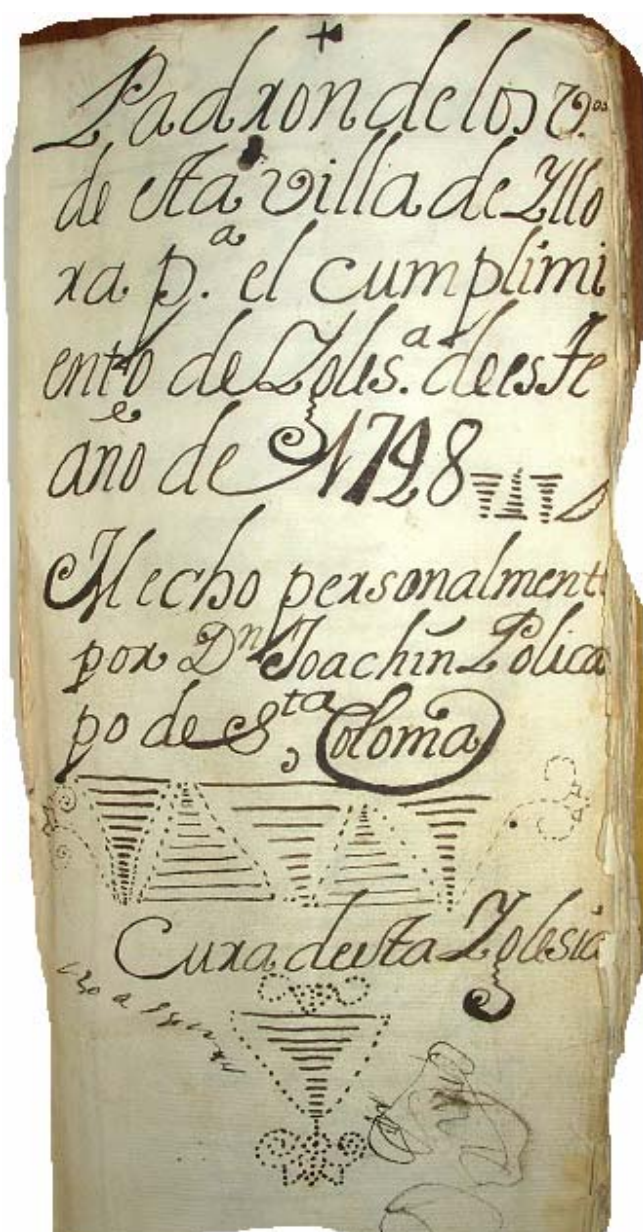 +
Padron de los V.os
de esta villa de Yllo
ra p.a el cumplimi
ento de Yglis.a de este
año de 1798
Hecho personalmente
por Dn Joachín Polica
po de S,ta Coloma
Cura de esta Yglesia